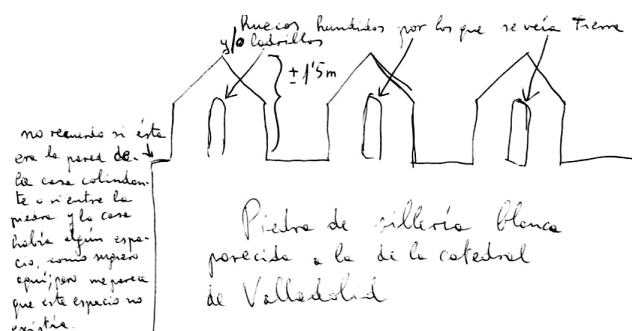 Huecos hundidos por los que se vería tierra
y/o ladrillos
± 1'5m
no recuerdo si ésta
era la pared de
la casa colindan-
te o si entre la
piedra y la casa
había algún espa-
cio, como sugiero
aquí; pero me parece
que este espacio no
existía.
Piedra de sillería blanca
parecida a la de la catedral
de Valladolid